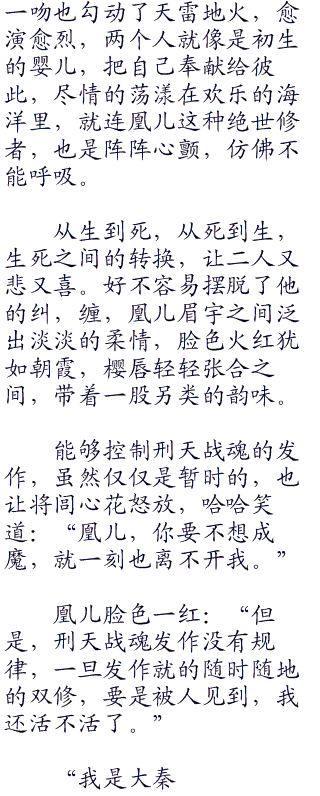 一吻也勾动了天雷地火，愈
演愈烈，两个人就像是初生
的婴儿，把自己奉献给彼
此，尽情的荡漾在欢乐的海
洋里，就连凰儿这种绝世修
者，也是阵阵心颤，仿佛不
能呼吸。
从生到死，从死到生，
生死之间的转换，让二人又
悲又喜。好不容易摆脱了他
的纠，缠，凰儿眉宇之间泛
出淡淡的柔情，脸色火红犹
如朝霞，樱唇轻轻张合之
间，带着一股另类的韵味。
能够控制刑天战魂的发
作，虽然仅仅是暂时的，也
让将闾心花怒放，哈哈笑
道：“凰儿，你要不想成
魔，就一刻也离不开我。”
凰儿脸色一红：“但
是，刑天战魂发作没有规
律，一旦发作就的随时随地
的双修，要是被人见到，我
还活不活了。”
“我是大秦